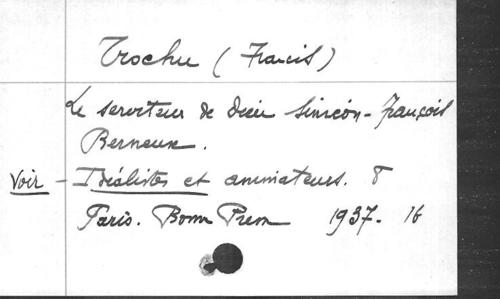 Trochu (Francis)
Le serviteur de Dieu Siméon-François
Berneux.
Voir - Idéalistes et animateurs. 8
Paris. Bonne Presse 1937. 16